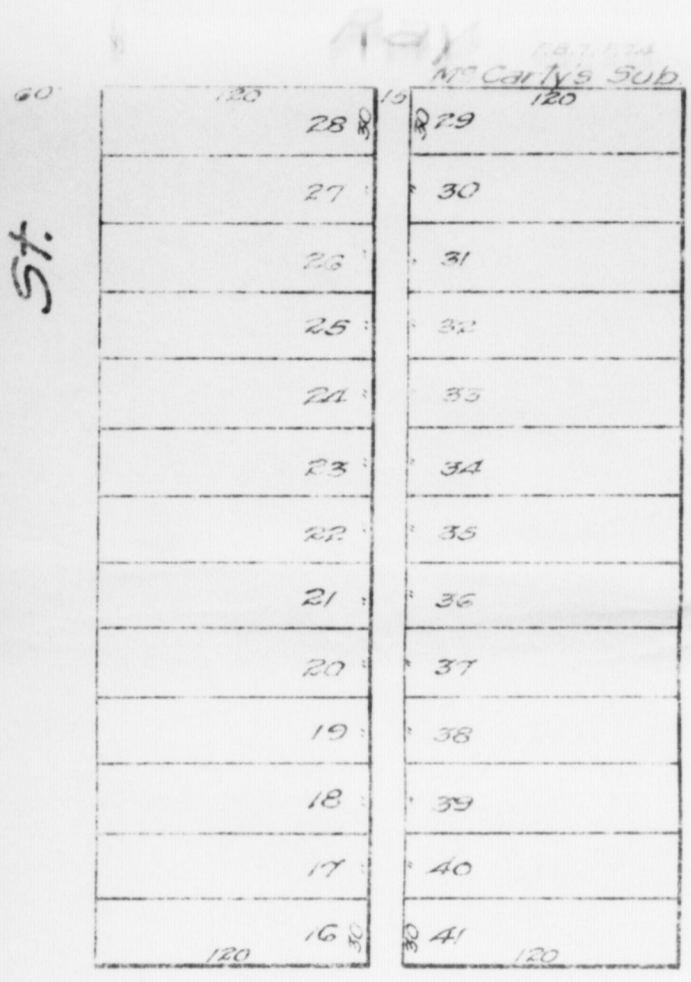 Ray
Mc Carty's Sub.
60 120 15 120
28 30 30 29
27 " " 30
St.
26 " 31
25 " " 32
24 " " 33
23 " " 34
22 " " 35
21 " " 36
20 " " 37
19 " " 38
18 " " 39
17 " " 40
16 30 30 41
120 120